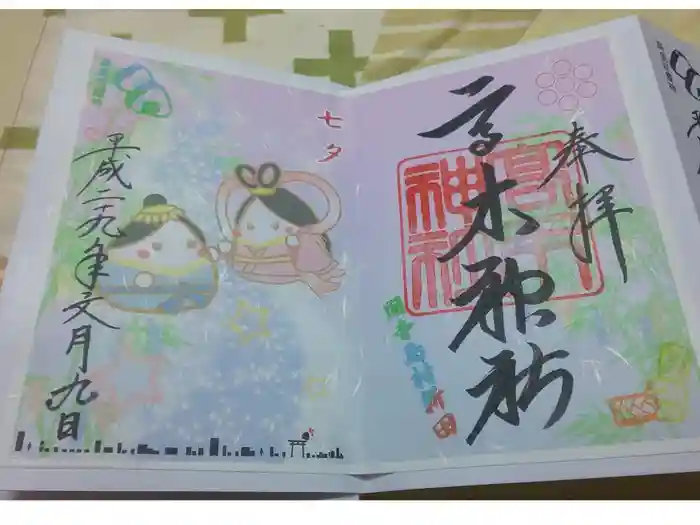 奉拝
高木神社
高木
神社
七夕
平成二十九年文月九日